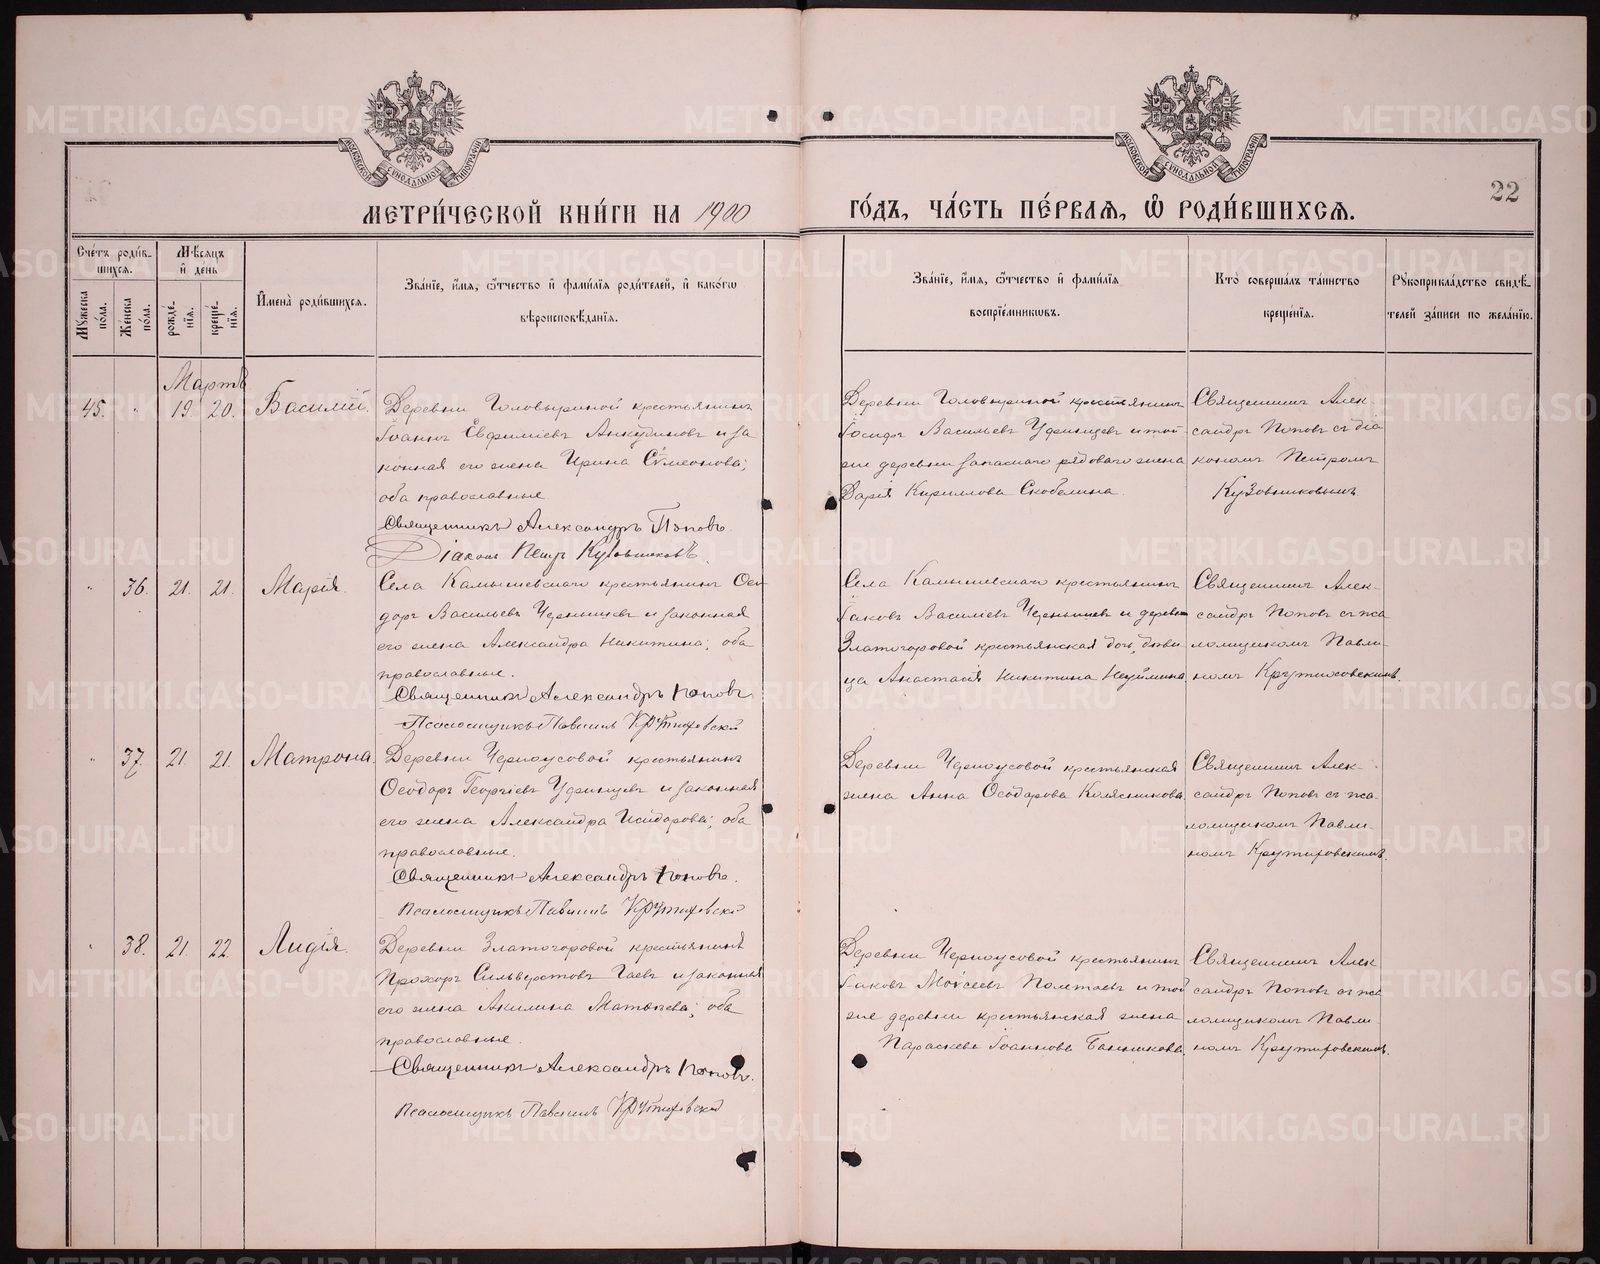 МОСКОВСКОЙ СѴНОДАЛЬНОЙ ТИПОГРАФІИ
МОСКОВСКОЙ СѴНОДАЛЬНОЙ ТИПОГРАФІИ
22
МЕТРИ́ЧЕСКОЙ КНИ́ГИ НА 1900
ГО́ДЪ, ЧА́СТЬ ПЕ́РВАЯ, Ѡ РОДИ́ВШИХСЯ.
Сче́тъ роди́в-
шихся.
Мужеска по́ла.
Же́нска по́ла.
Мѣ́сяцъ и де́нь
рожде́нія.
креще́нія.
Имена̀ роди́вшихся.
Зва́ніе, и́мя, ѻ́тчество и фами́лія роди́телей, и како́гѡ
вѣроисповѣ́данія.
Зва́ніе, и́мя, ѻ́тчество и фами́лія
воспріе́мниковъ.
Кто̀ соверша́лъ та́инство
креще́нія.
Рукоприкла́дство свидѣ́-
телей за́писи по жела́нію.
Мартъ
45. " 19. 20. Василій.
Деревни Головыриной крестьянинъ
Іоаннъ Евфиміевъ Анкудиновъ и за
конная его жена Ирина Сѵмеонова;
оба православные
Священникъ Александръ Поповъ.
Діаконъ Петръ Кузовниковъ.
Деревни Головыриной крестьянинъ
Іосифъ Васильевъ Уфинцевъ и той
же деревни запаснаго рядоваго жена
Дарія Кириллова Скобелина.
Священникъ Алек-
сандръ Поповъ съ діа
кономъ Петромъ
Кузовниковымъ
" 36. 21. 21. Марія.
Села Камышевскаго крестьянинъ Ѳео
доръ Васильевъ Чернышевъ и законная
его жена Александра Никитина; оба
православные.
Священникъ Александръ Поповъ
Псаломщикъ Павлинъ Крутиховскій
Села Камышевскаго крестьянинъ
Іаковъ Василіевъ Чернышевъ и деревни
Златогоровой крестьянская дочь, дѣви-
ца Анастасія Никитина Неуймина
Священникъ Алек-
сандръ Поповъ съ пса
ломщикомъ Павли-
номъ Крутиховскимъ.
" 37. 21. 21. Матрона.
Деревни Черноусовой крестьянинъ
Ѳеодоръ Георгіевъ Уфинцевъ и законная
его жена Александра Исидорова; оба
православные.
Священникъ Александръ Поповъ.
Псаломщикъ Павлинъ Крутиховскій
Деревни Черноусовой крестьянская
жена Анна Ѳеодорова Колясникова
Священникъ Алек-
сандръ Поповъ съ пса-
ломщикомъ Павли-
номъ Крутиховскимъ.
" 38. 21. 22. Лидія.
Деревни Златогоровой крестьянинъ
Прохоръ Сильверстовъ Гаевъ и законная
его жена Акилина Матвѣева; оба
православные.
Священникъ Александръ Поповъ.
Псаломщикъ Павлинъ Крутиховскій
Деревни Черноусовой крестьянинъ
Іаковъ Моѵсеевъ Полтаевъ и той
же деревни крестьянская жена
Параскева Іоаннова Банникова.
Священникъ Алек
сандръ Поповъ съ пса
ломщикомъ Павли-
номъ Крутиховскимъ.
METRIKI.GASO-URAL.RU